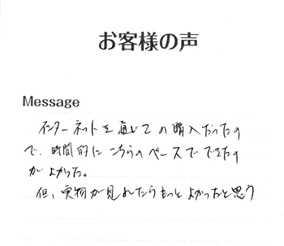 お客様の声
Message
インターネットを通じての購入だったの
で、時間的にこちらのペースでできたの
がよかった。
但、実物が見れたらもっとよかったと思う